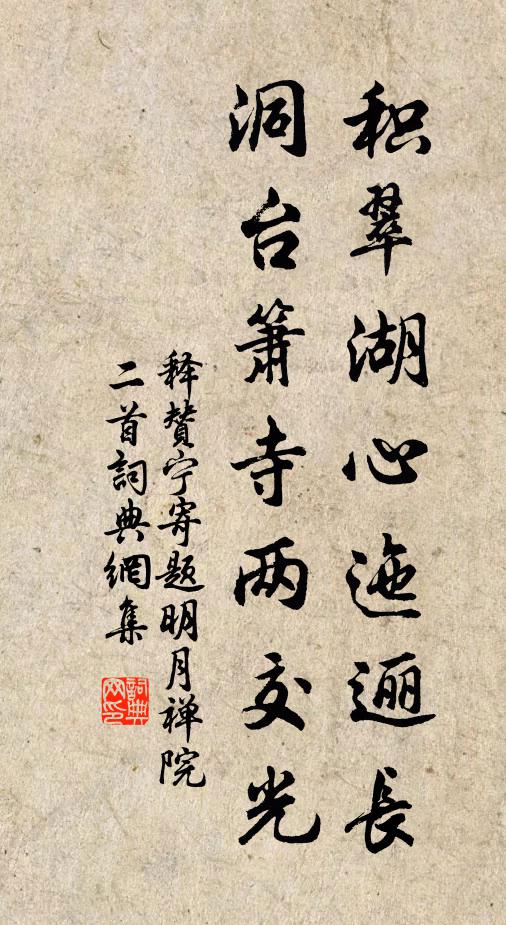 积翠湖心迤逦长
洞台箫寺两交光
释赞宁寄题明月禅院
二首詞典網集
詞典網印